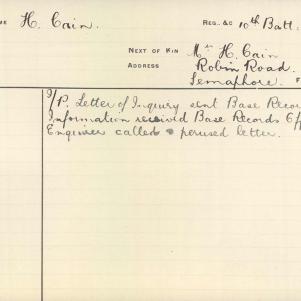 ME H. Cain. REG. &c 10th Batt.
NEXT OF KIN Mrs H. Cain
ADDRESS Robin Road.
Semaphore. F
I/P. Letter of Inquiry sent Base Recor
Information received Base Records 6/
Enquirer called & perused letter.